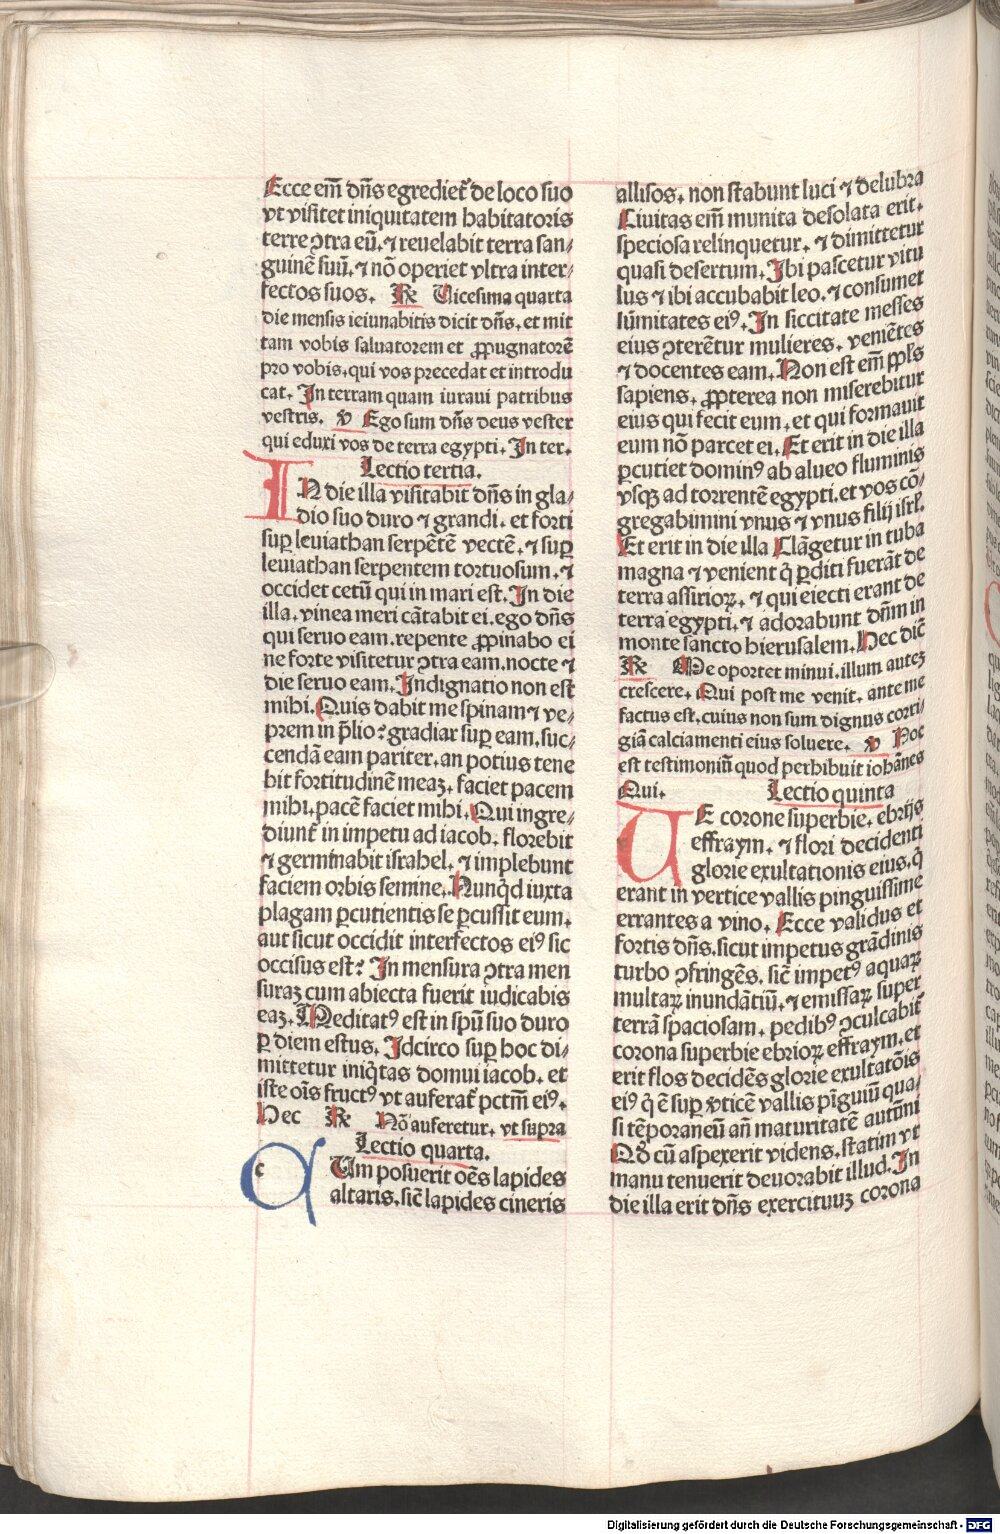 Ecce em̄ dn̄s egrediet᷑ de loco suo
vt visitet iniquitatem habitatoris
terre ꝯtra eū. ⁊ reuelabit terra san/
guinē suū. ⁊ nō operiet vltra inter/
fectos suos. R̷ Vicesima quarta
die mensis ieiunabitis dicit dn̄s. et mit
tam vobis saluatorem et ꝓpugnatorē
pro vobis. qui vos precedat et introdu
cat. In terram quam iuraui patribus
vestris. ꝟ Ego sum dn̄s deus vester
qui eduxi vos de terra egypti. In ter.
Lectio tertia.
IN die illa visitabit dn̄s in gla/
dio suo duro ⁊ grandi. et forti
suꝑ leuiathan serpētē vectē. ⁊ suꝑ
leuiathan serpentem tortuosum. ⁊
occidet cetū qui in mari est. In die
illa. vinea meri cātabit ei. ego dn̄s
qui seruo eam. repente ꝓpinabo ei
ne forte visitetur ꝯtra eam. nocte ⁊
die seruo eam. Indignatio non est
mihi. Quis dabit me spinam ⁊ ve/
prem in p̄lio? gradiar suꝑ eam. suc/
cendā eam pariter. an potius tene
bit fortitudinē meaꝫ. faciet pacem
mihi. pacē faciet mihi. Qui ingre/
diunt᷑ in impetu ad iacob. florebit
⁊ germinabit israhel. ⁊ implebunt
faciem orbis semine. Nunq̇d iuxta
plagam ꝑcutientis se ꝑcussit eum.
aut sicut occidit interfectos eiꝰ sic
occisus est? In mensura ꝯtra men
suraꝫ cum abiecta fuerit iudicabis
eaꝫ. Meditatꝰ est in spū suo duro
ꝑ diem estus. Idcirco suꝑ hoc di/
mittetur iniq̇tas domui iacob. et
iste oīs fructꝰ vt auferat᷑ pctm̄ eiꝰ.
Hec R̷ Nō auferetur. vt supra
Lectio quarta.
c Um posuerit oēs lapides
altaris. sic̄ lapides cineris
allisos. non stabunt luci ⁊ delubra
Ciuitas em̄ munita desolata erit.
speciosa relinquetur. ⁊ dimittetur
quasi desertum. Ibi pascetur vitu
lus ⁊ ibi accubabit leo. ⁊ consumet
sūmitates eiꝰ. In siccitate messes
eius ꝯterētur mulieres. veniētes
⁊ docentes eam. Non est em̄ ppl̄s
sapiens. ꝓpterea non miserebitur
eius qui fecit eum. et qui formauit
eum nō parcet ei. Et erit in die illa
ꝑcutiet dominꝰ ab alueo fluminis
vsqꝫ ad torrentē egypti. et vos cō/
gregabimini vnus ⁊ vnus filij isrl̄.
Et erit in die illa Clāgetur in tuba
magna ⁊ venient q̇ ꝑditi fuerāt de
terra assirioꝝ. ⁊ qui eiecti erant de
terra egypti. ⁊ adorabunt dn̄m in
monte sancto hierusalem. Hec dic̄
R̷ Me oportet minui. illum auteꝫ
crescere. Qui post me venit. ante me
factus est. cuius non sum dignus corri/
giā calciamenti eius soluere. ꝟ Hoc
est testimoniū quod perhibuit iohānes
Qui. Lectio quinta
VE corone superbie. ebrijs
effraym. ⁊ flori decidenti
glorie exultationis eius. q̇
erant in vertice vallis pinguissime
errantes a vino. Ecce validus et
fortis dn̄s. sicut impetus grādinis
turbo ꝯfringēs. sic̄ impetꝰ aquaꝝ
multaꝝ inundātiū. ⁊ emissaꝝ super
terrā spaciosam. pedibꝰ ꝯculcabit᷑
corona superbie ebrioꝝ effraym. et
erit flos decidēs glorie exultatōis
eiꝰ q̇ ē suꝑ ꝟticē vallis pīguiū qua/
si tēporaneū an̄ maturitatē autūni
Qd̓ cū aspexerit videns. statim vt
manu tenuerit deuorabit illud. In
die illa erit dn̄s exercituuꝫ corona
Digitalisierung gefördert durch die Deutsche Forschungsgemeinschaft - DFG